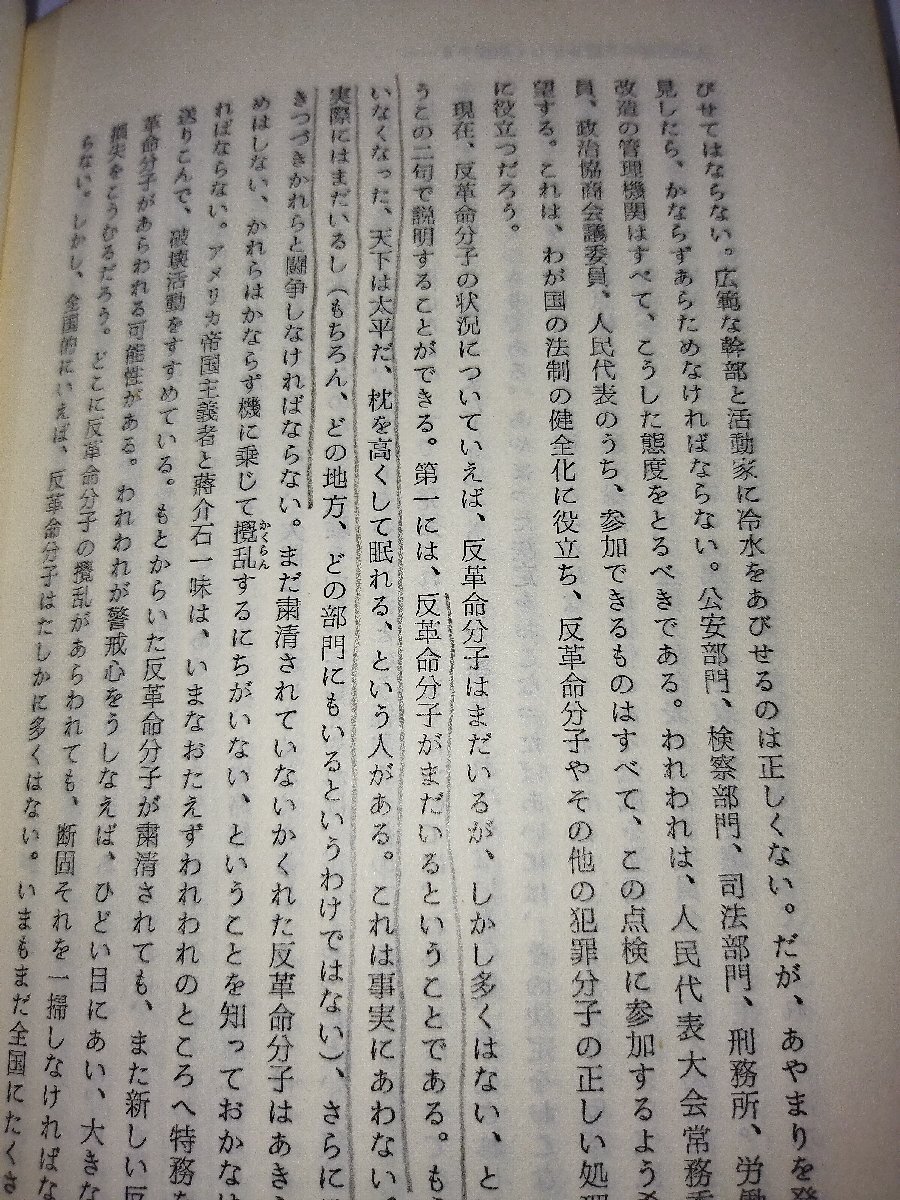 びせてはならない。広範な幹部と活動家に冷水をあびせるのは正しくない。だが、あやまりを発
見したら、かならずあらためなければならない。公安部門、検察部門、司法部門、刑務所、労働
改造の管理機関はすべて、こうした態度をとるべきである。われわれは、人民代表大会常務委
員、政治協商会議委員、人民代表のうち、参加できるものはすべて、この点検に参加するよう希
望する。これは、わが国の法制の健全化に役立ち、反革命分子やその他の犯罪分子の正しい処理
に役立つだろう。
現在、反革命分子の状況についていえば、反革命分子はまだいるが、しかし多くはない、と
うこの二句で説明することができる。第一には、反革命分子がまだいるということである。もう
いなくなった、天下は太平だ、枕を高くして眠れる、という人がある。これは事実にあわない。
実際にはまだいるし（もちろん、どの地方、どの部門にもいるというわけではない）、さらに
きつづきかれらと闘争しなければならない。まだ粛清されていないかくれた反革命分子はあき
めはしない、かれらはかならず機に乗じて攪乱するにちがいない、ということを知っておかなけ
かくらん
ればならない。アメリカ帝国主義者と蔣介石一味は、いまなおたえずわれわれのところへ特務を
送りこんで、破壊活動をすすめている。もとからいた反革命分子が粛清されても、また新しい反
革命分子があらわれる可能性がある。われわれが警戒心をうしなえば、ひどい目にあい、大きな
損失をこうむるだろう。どこに反革命分子の攪乱があらわれても、断固それを一掃しなければな
らない。しかし、全国的にいえば、反革命分子はたしかに多くはない。いまもまだ全国にたくさ